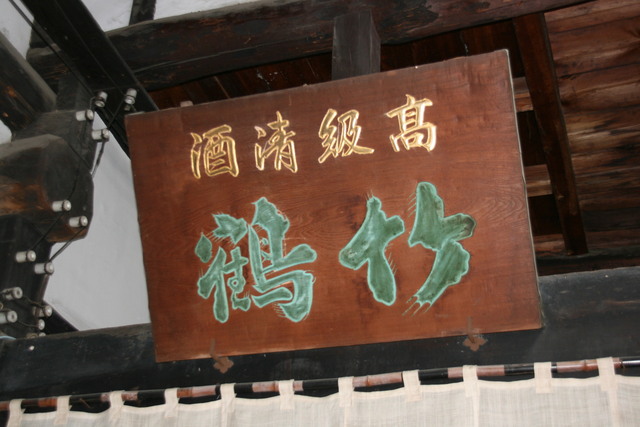 髙級清酒
竹鶴